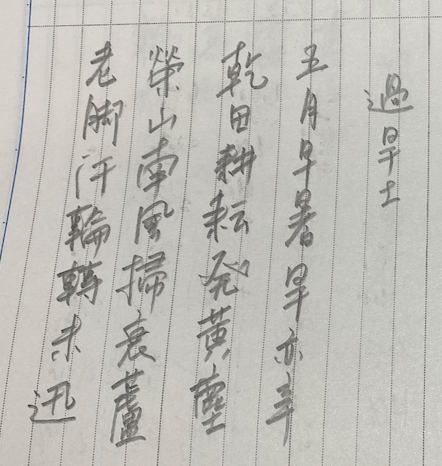 過旱土
五月早暑旱亦辛
乾田耕耘黃塵
榮山南風掃衰蘆
老脚汗輪轉未迅